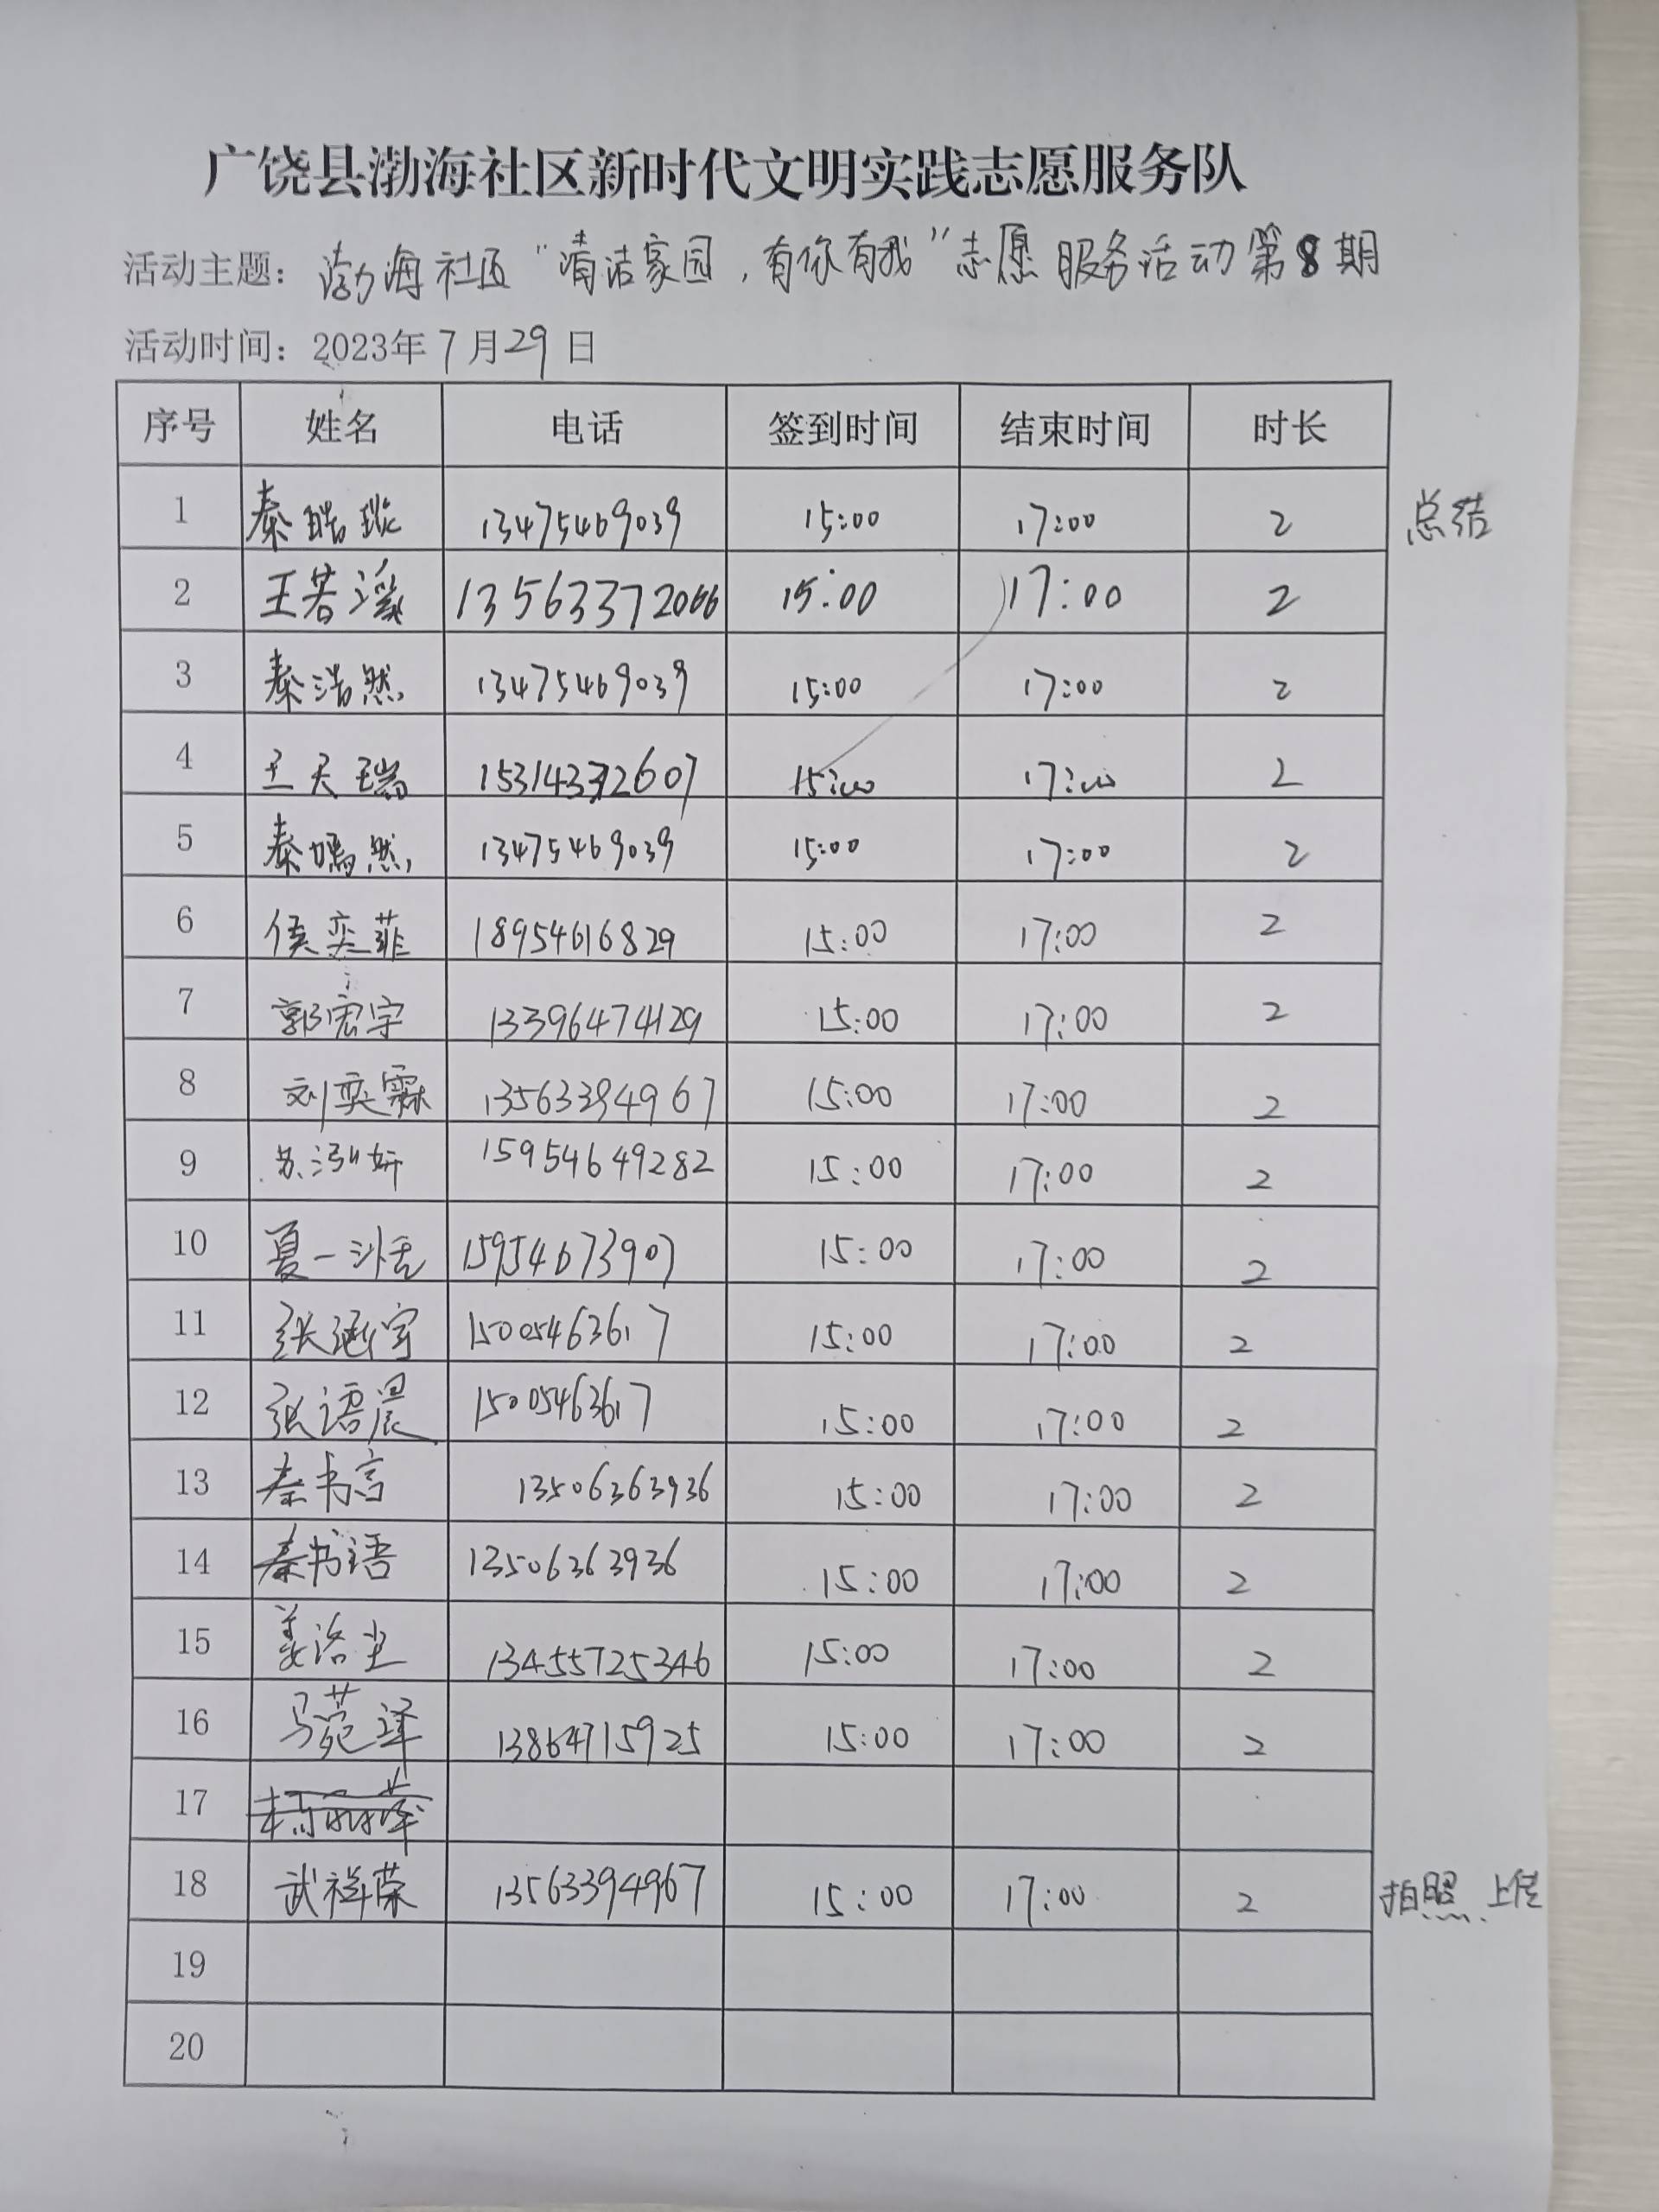 广饶县渤海社区新时代文明实践志愿服务队
活动主题：渤海社区“清洁家园，有你有我”志愿服务活动第8期
活动时间：2023年7月29日
序号 姓名 电话 签到时间 结束时间 时长
1 秦 13475469039 15:00 17:00 2 总结
2 王若溪 13563372066 15:00 17:00 2
3 秦浩然 13475469039 15:00 17:00 2
4 王天瑞 15:00 17:00 2
5 秦嫣然 13475469039 15:00 17:00 2
6 侯奕菲 18954616829 15:00 17:00 2
7 郭宏宇 13396474129 15:00 17:00 2
8 刘奕霖 13563394967 15:00 17:00 2
9 苏泓妍 15954649282 15:00 17:00 2
10 夏一 15954673907 15:00 17:00 2
11 张涵宇 15005463617 15:00 17:00 2
12 张语晨 15005463617 15:00 17:00 2
13 秦书言 13506363936 15:00 17:00 2
14 秦书语 13506363936 15:00 17:00 2
15 姜洛尘 13455725346 15:00 17:00 2
16 马菀泽 13864715925 15:00 17:00 2
17
18 武祥荣 13563394967 15:00 17:00 2 拍照、上传
19
20